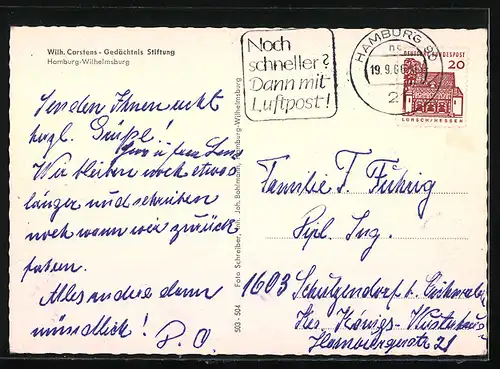 Wilh. Carstens - Gedächtnis Stiftung
Hamburg-Wilhelmsburg
Noch
schneller?
Dann mit
Luftpost!
HAMBURG
19.9.66
2
DEUTSCHE BUNDESPOST
20
LORSCH/HESSEN
Senden Ihnen
herzl. Grüße!
Wir bleiben noch etwas
länger und schreiben
noch wann wir zurück
fahren.
Alles andere dann
mündlich!
Foto Schreiber, Inh. Joh. Bahlmann, Hamburg-Wilhelmsburg
503 - 504
Familie F. Führig
Dipl. Ing.
1603 Schulzendorf b.
Krs. Königs-Wusterhausen
Hamburgerstr 21